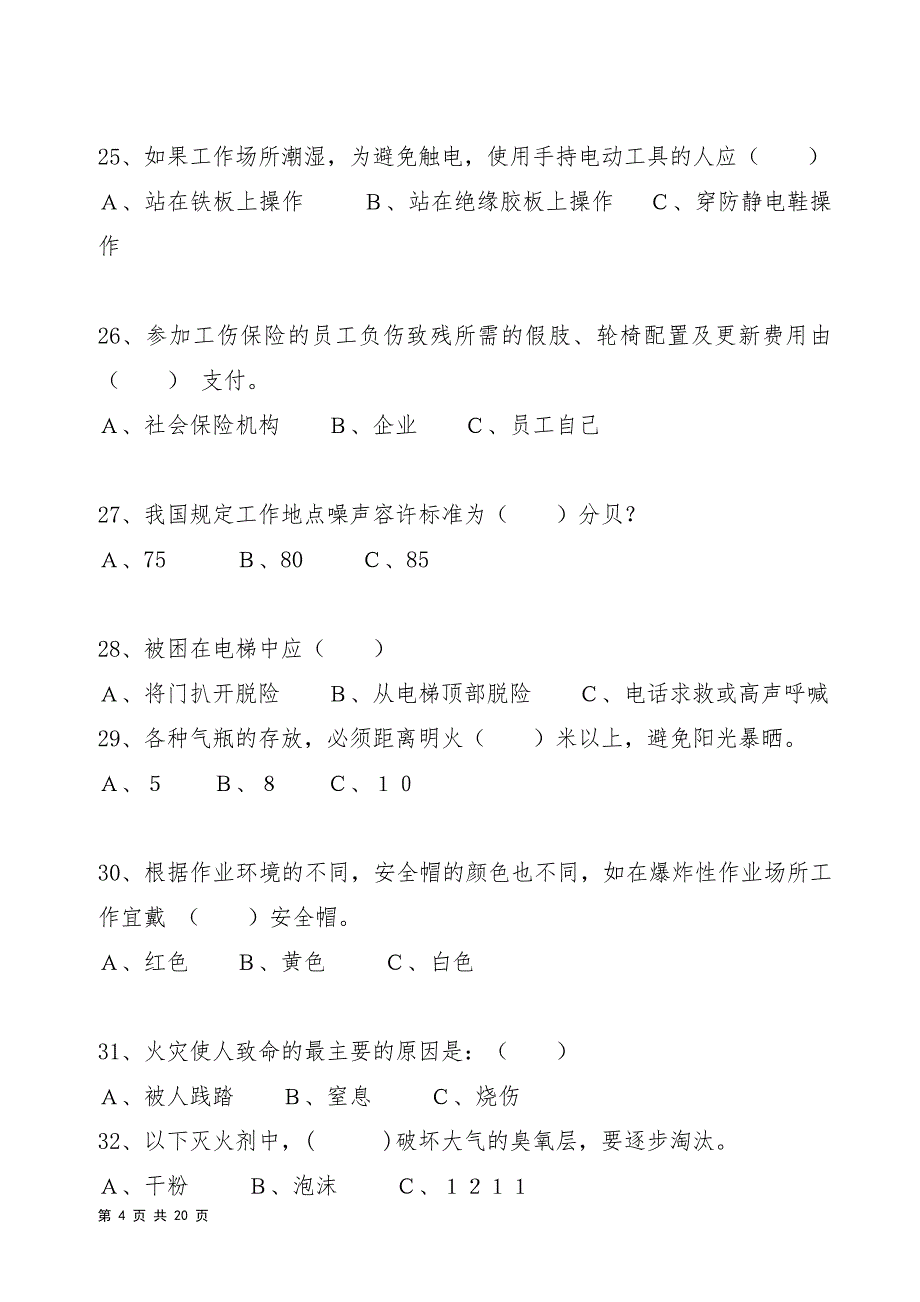 25、如果工作场所潮湿，为避免触电，使用手持电动工具的人应（　　）
Ａ、站在铁板上操作　　Ｂ、站在绝缘胶板上操作　Ｃ、穿防静电鞋操
作
26、参加工伤保险的员工负伤致残所需的假肢、轮椅配置及更新费用由
（　　） 支付。
Ａ、社会保险机构　　Ｂ、企业　　Ｃ、员工自己
27、我国规定工作地点噪声容许标准为（　　）分贝？
Ａ、75　　　Ｂ、80　　Ｃ、85
28、被困在电梯中应（　　）
Ａ、将门扒开脱险　　Ｂ、从电梯顶部脱险　　Ｃ、电话求救或高声呼喊
29、各种气瓶的存放，必须距离明火（　　）米以上，避免阳光暴晒。
Ａ、５　　Ｂ、８　　Ｃ、１０
30、根据作业环境的不同，安全帽的颜色也不同，如在爆炸性作业场所工
作宜戴 （　　）安全帽。
Ａ、红色　　Ｂ、黄色　　Ｃ、白色
31、火灾使人致命的最主要的原因是：（　　）
Ａ、被人践踏　　Ｂ、窒息　　Ｃ、烧伤
32、以下灭火剂中，(　　　)破坏大气的臭氧层，要逐步淘汰。
Ａ、干粉　　Ｂ、泡沫　　Ｃ、１２１１
第 4 页 共 20 页